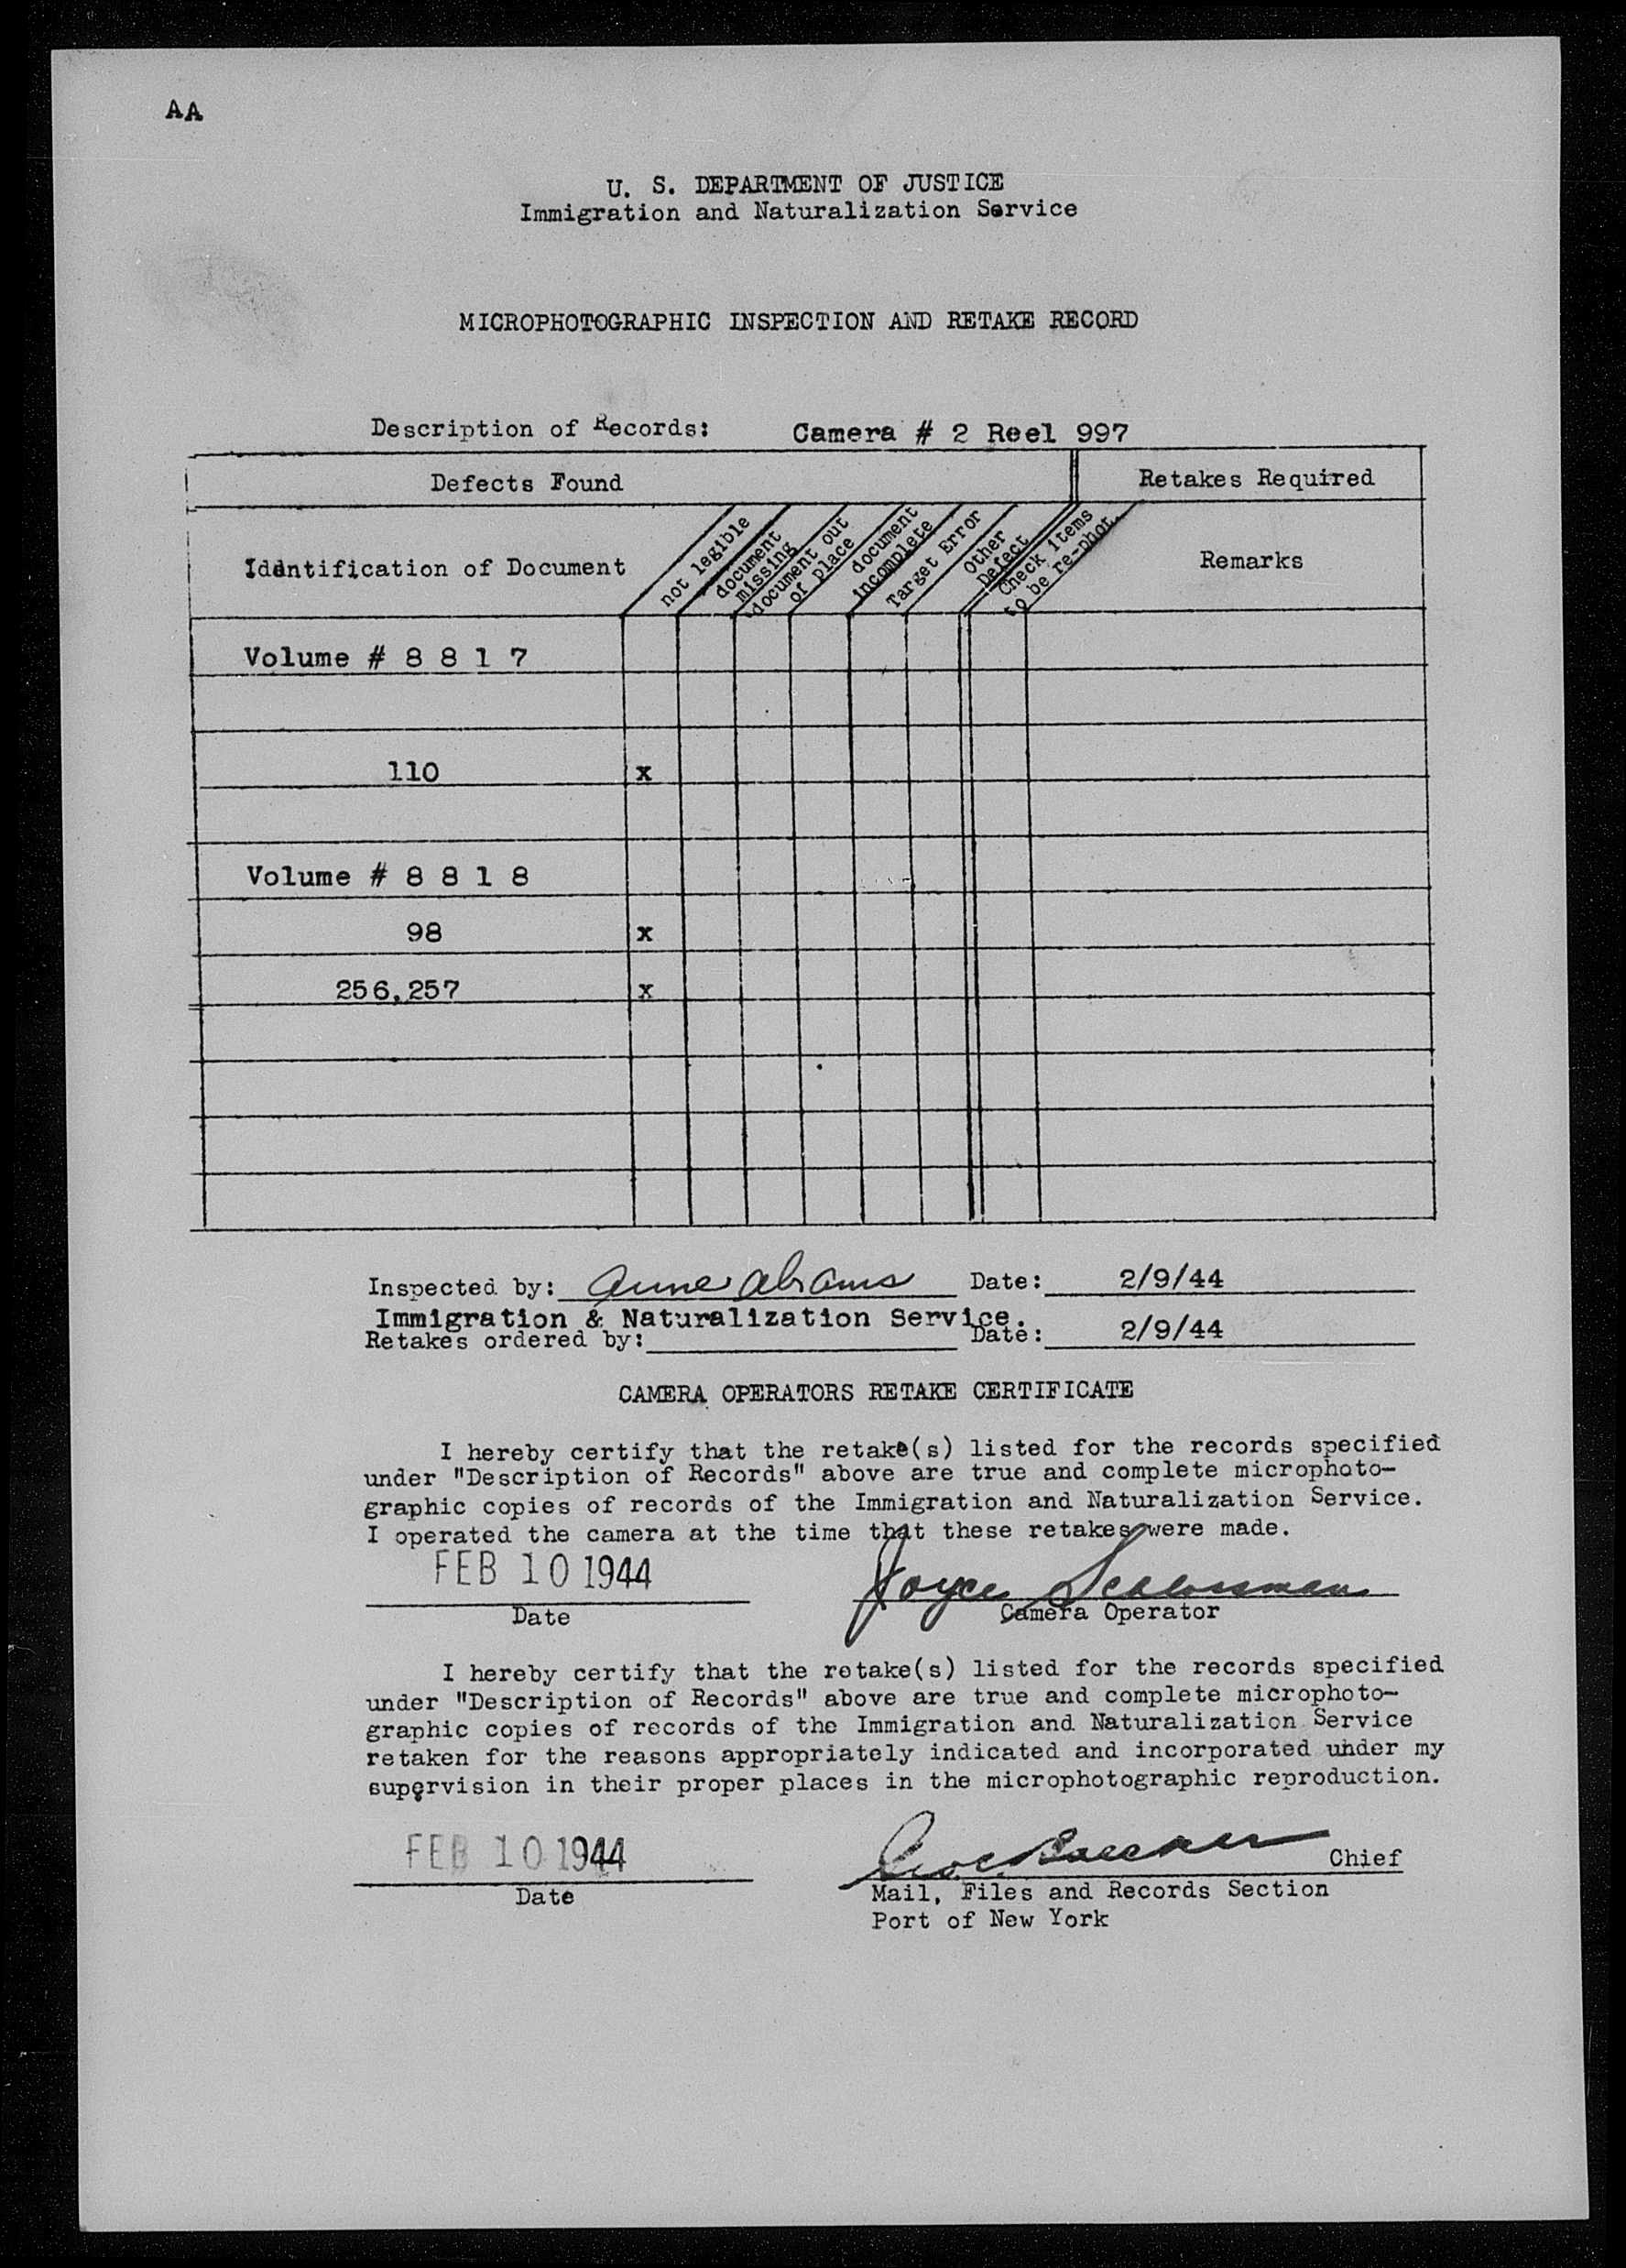 AA
U. S. DEPARTMENT OF JUSTICE
Immigration and Naturalization Service
MICROPHOTOGRAPHIC INSPECTION AND RETAKE RECORD
Description of Records: Camera # 2 Reel 997
Defects Found
Retakes Required
Identification of Document
not legible
document
missing
document out
of place
document
incomplete
Target Error
Other
Defect
Check items
to be re-phot.
Remarks
Volume # 8 8 1 7
110 x
Volume # 8 8 1 8
98 x
256,257 x
Inspected by: Anne Abrams Date: 2/9/44
Immigration & Naturalization Service.
Retakes ordered by: Date: 2/9/44
CAMERA OPERATORS RETAKE CERTIFICATE
I hereby certify that the retake(s) listed for the records specified
under "Description of Records" above are true and complete microphoto-
graphic copies of records of the Immigration and Naturalization Service.
I operated the camera at the time that these retakes were made.
FEB 10 1944 Joyce Schlossman
Date Camera Operator
I hereby certify that the retake(s) listed for the records specified
under "Description of Records" above are true and complete microphoto-
graphic copies of records of the Immigration and Naturalization Service
retaken for the reasons appropriately indicated and incorporated under my
supervision in their proper places in the microphotographic reproduction.
FEB 10 1944 Chief
Date Mail, Files and Records Section
Port of New York